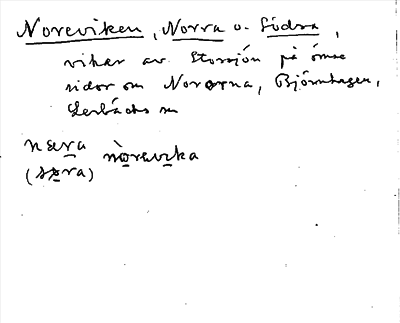 Noreviken, Norra o. Södra,
vikar av Storsjön på ömse
sidor om Nororna, Björnhagen,
Lerbäcks sn
nɷra nòrevika
(sɷra)